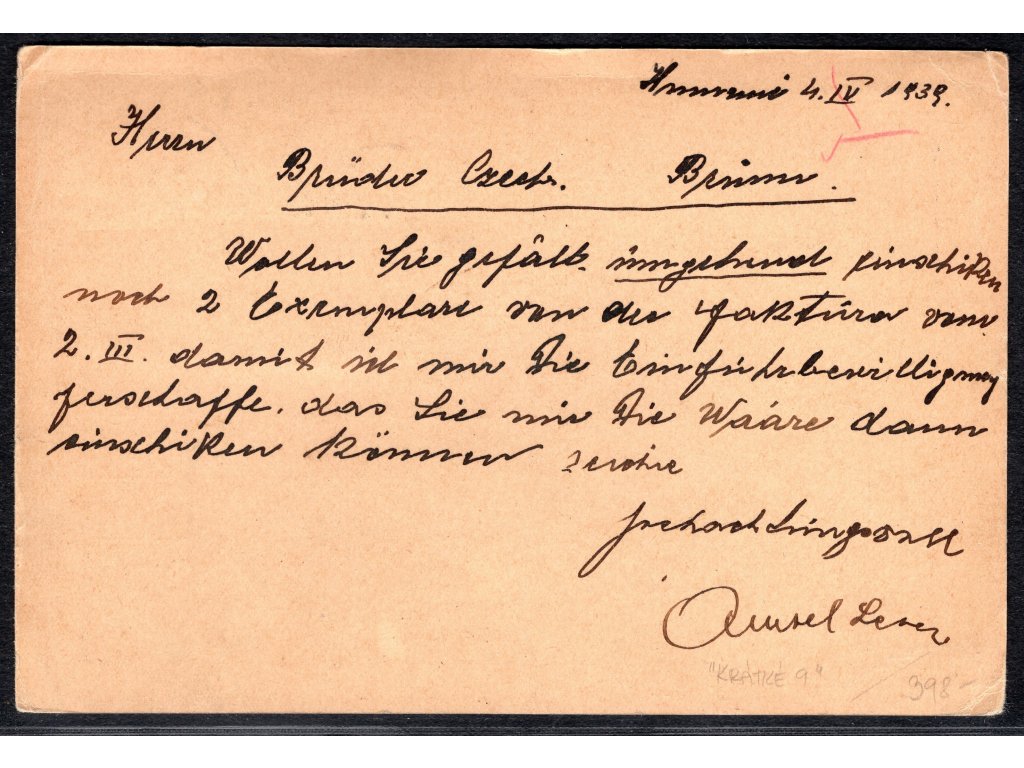 4. IV 1939.
Herrn
Brüder Czech. Brünn.
Wollen Sie gefält. ümgehend einschiken
noch 2 Exemplare von der Faktüra vom
2. III. damit ich mir Die Einfuhrbevilligung
ferschaffe. das Sie mir Die Wááre dann
einschiken können zeichne
hochachtungsvoll
"KRÁTKÉ 9" 398-